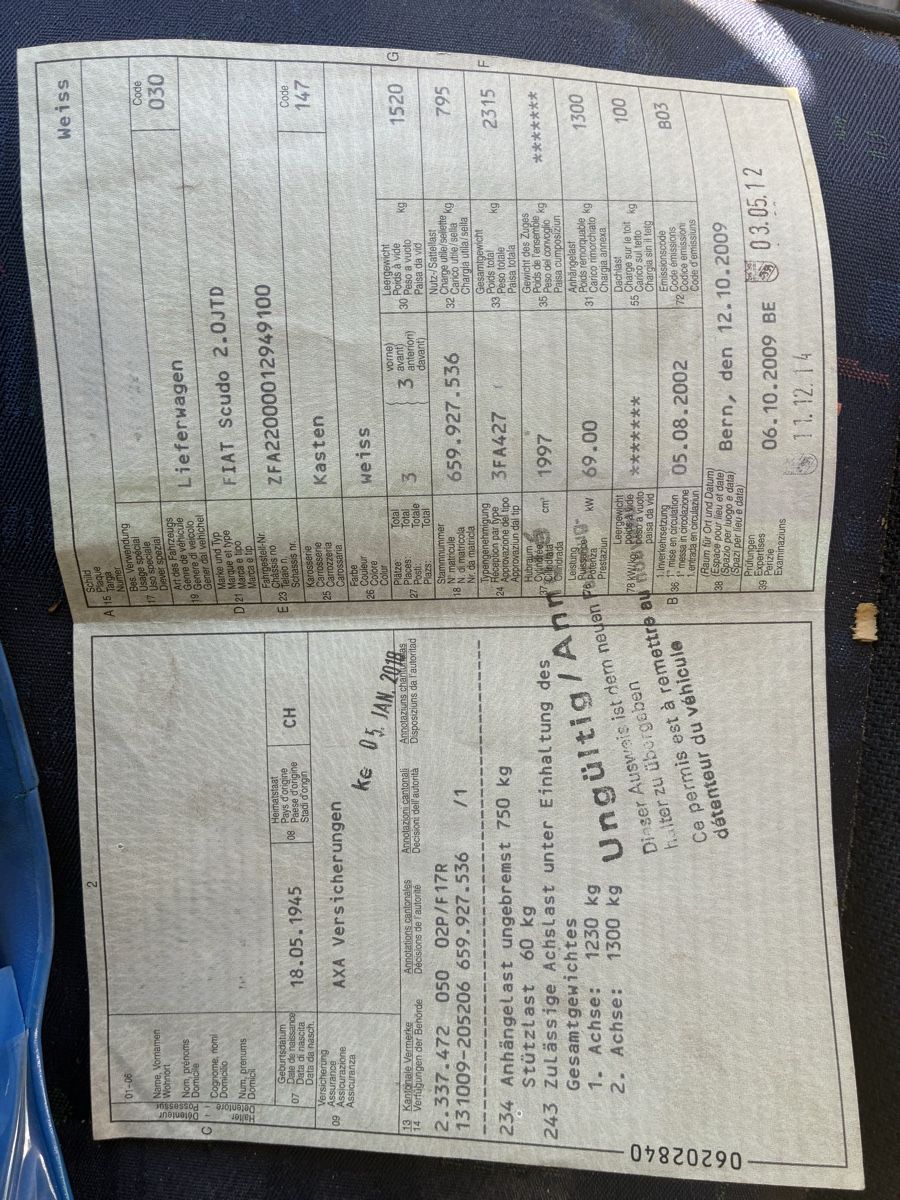 2
01-06
Détenteur Possessur
Halter Detentore
C
Name, Vornamen
Wohnort
Nom, prénoms
Domicile
Cognome, nomi
Domicilio
Num, prenums
Domicil
07 Geburtsdatum
Date de naissance
Data di nascita
Data da nasch.
18.05.1945
08 Heimatstaat
Pays d'origine
Paese d'origine
Stadi d'origin
CH
09 Versicherung
Assurance
Assicurazione
Assicuranza
AXA Versicherungen
05. JAN. 2018
13 Kantonale Vermerke Annotations cantonales Annotazioni cantonali Annotaziuns chantunalas
14 Verfügungen der Behörde Décisions de l'autorité Decisioni dell'autorità Disposiziuns da l'autoritad
2.337.472 050 02P/F17R
131009-205206 659.927.536 /1
234 Anhängelast ungebremst 750 kg
Stützlast 60 kg
243 Zulässige Achslast unter Einhaltung des
Gesamtgewichtes
1. Achse: 1230 kg
2. Achse: 1300 kg
Ungültig / Annulé
Dieser Ausweis ist dem neuen
halter zu übergeben
Ce permis est à remettre au
détenteur du véhicule
06202840
A 15 Schild
Plaque
Targa
Numer
Weiss
17 Bes. Verwendung
Usage spécial
Uso speciale
Diever spezial
19 Art des Fahrzeugs
Genre de véhicule
Genere di veicolo
Gener dal vehichel
Lieferwagen
Code
030
D 21 Marke und Typ
Marque et type
Marca e tipo
Marca e tip
FIAT Scudo 2.0JTD
E 23 Fahrgestell-Nr.
Châssis no
Telaio n.
Schassis nr.
ZFA22000012949100
25 Karosserie
Carrosserie
Carrozzeria
Carossaria
Kasten
Code
147
26 Farbe
Couleur
Colore
Color
weiss
27 Plätze: Total
Places: Total
Posti: Totale
Plazs: Total
3
3
vorne)
avant)
anteriori)
davant)
30 Leergewicht
Poids à vide
Peso a vuoto
Paisa da vid
kg
1520
G
18 Stammnummer
No matricule
N. di matricola
Nr. da matricla
659.927.536
32 Nutz-/Sattellast
Charge utile/sellette
Carico utile/sella
Chargia utila/sella
kg
795
24 Typengenehmigung
Réception par type
Approvazione del tipo
Approvaziun dal tip
3FA427
33 Gesamtgewicht
Poids total
Peso totale
Paisa totala
kg
2315
F
37 Hubraum
cm³
1997
35 Gewicht des Zuges
Poids de l'ensemble
Peso del convoglio
Paisa cumposiziun
kg
*******
Leistung
Puissance
Potenza
Prestaziun
kW
69.00
31 Anhängelast
Poids remorquable
Carico rimorchiato
Chargia annexa
kg
1300
78 kW/Leergewicht
poids à vide
peso a vuoto
paisa da vid
*******
55 Dachlast
Charge sur le toit
Carico sul tetto
Chargia sin il tetg
kg
100
B 36 1. Inverkehrsetzung
1re mise en circulation
1a messa in circolazione
1. entrada en circulaziun
05.08.2002
72 Emissionscode
Code émissions
Codice emissioni
Code d'emissiuns
B03
38 (Raum für Ort und Datum)
(Espace pour lieu et date)
(Spazio per luogo e data)
(Spazi per lieu e data)
Bern, den 12.10.2009
39 Prüfungen
Expertises
Perizie
Examinaziuns
06.10.2009 BE
03.05.12
11.12.14